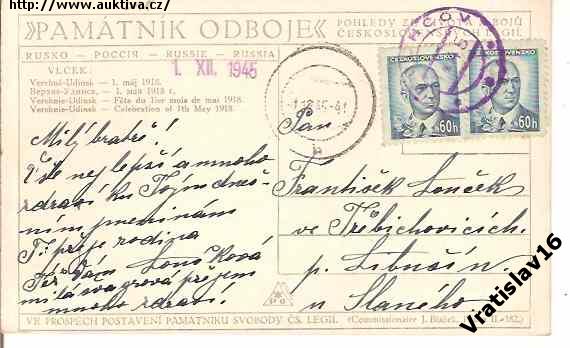 http://www.auktiva.cz/
»PAMÁTNÍK ODBOJE«
POHLEDY ZE ŽIVOTA ODBOJŮ
ČESKOSLOVENSKÝCH LEGIÍ.
RUSKO — РОССІЯ — RUSSIE — RUSSIA
VLČEK:
1. XII. 1945
Verchně-Udinsk — 1. máj 1918.
Верхне-Удинск. — 1. мая 1918 г.
Verchnie-Udinsk — Fête du 1ier mois de mai 1918.
Verchnie-Udinsk — Celebration of 1th May 1918.
ČESKOSLOVENSKO
60h
60h
Milý bratře!
Vše nejlepší a mnoho
zdraví ku Tvým dneš-
ním jmeninám
Ti přeje rodina
Lončková
milá švagrová přejem
mnoho zdraví!
Pan
František Lonček
ve Třebichovicích
p. Libušín
u Slaného
VE PROSPĚCH POSTAVENÍ PAMÁTNÍKU SVOBODY ČS. LEGIÍ.
Vratislav16